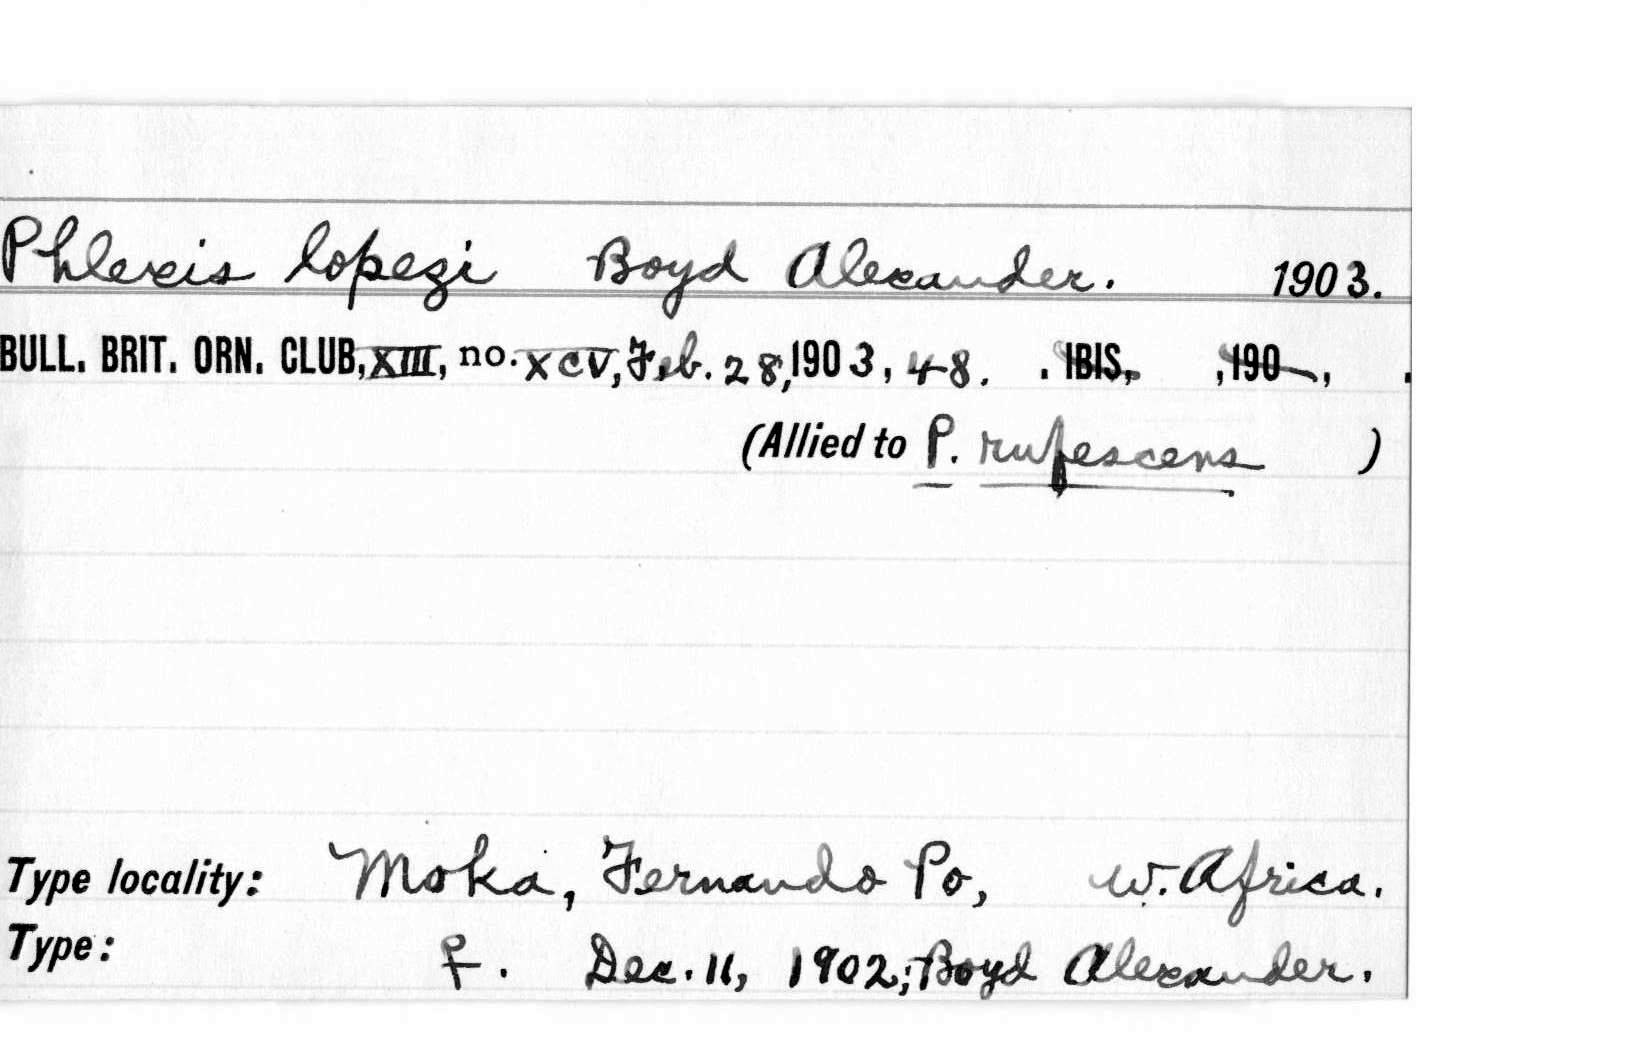 Phlexis lopezi Boyd Alexander. 1903.
BULL. BRIT. ORN. CLUB, XIII, no. XCV, Feb. 28, 1903, 48. . IBIS, ,190 , .
(Allied to P. rufescens )
Type locality: Moka, Fernando Po, W. Africa.
Type: ♀. Dec. 11, 1902; Boyd Alexander.